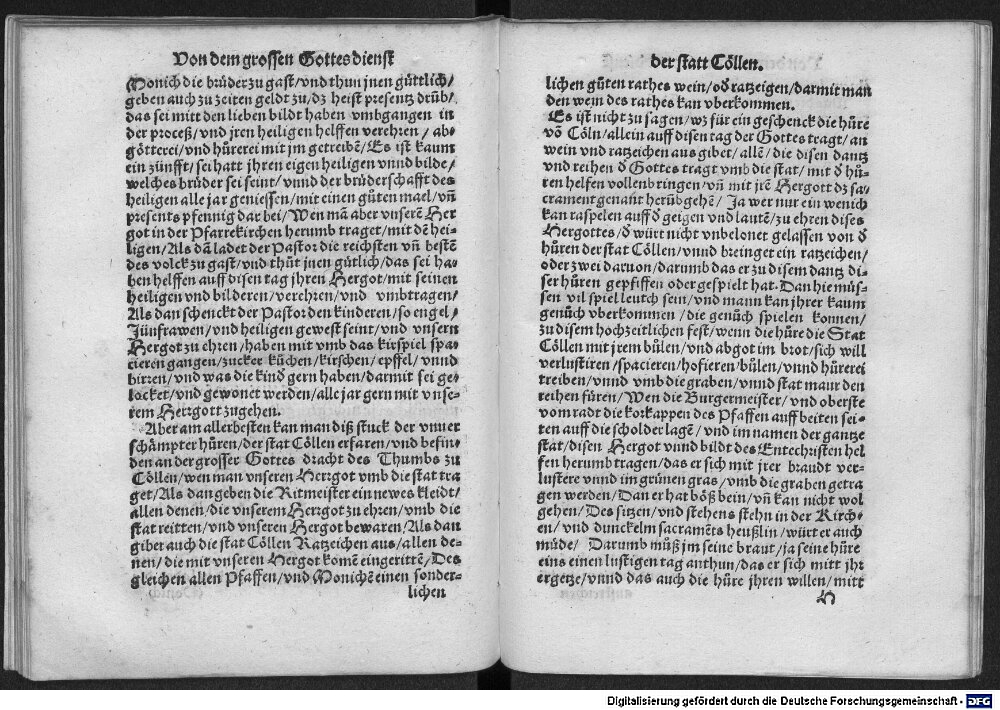 Von dem grossen Gottesdienst
Monich die brüder zu gast/vnd thun jnen güttlich/
geben auch zu zeiten geldt zu/dz heist presentz drüb/
das sei mit den lieben bildt haben vmbgangen in
der proceß/vnd jren heiligen helffen verehren/ab-
götterei/vnd hürerei mit jm getreibẽ/Es ist kaum
ein zünfft/sei hatt jhren eigen heiligen vnnd bilde/
welches brüder sei seint/vnnd der brüderschafft des
heiligen alle jar geniessen/mit einen güten mael/vñ
presents pfennig dar bei/Wen mã aber vnserẽ Her
got in der Pfarrekirchen herumb traget/mit dẽ hei-
ligen/Als dã ladet der Pastor die reichsten vñ bestẽ
des volck zu gast/vnd thüt jnen gütlich/das sei ha-
ben helffen auff disen tag jhren Hergot/mit seinen
heiligen vnd bilderen/verehren/vnd vmbtragen/
Als dan schenckt der Pastor den kinderen/so engel/
Jünfrawen/vnd heiligen gewest seint/vnd vnsern
Hergot zu ehren/haben mit vmb das kirspiel spa-
cieren gangen/zucker küchen/kirschen/epffel/vnnd
birren/vnd was die kinď gern haben/darmit sei ge-
locket/vnd gewonet werden/alle jar gern mit vnse-
rem Herrgott zugehen.
Aber am allerbesten kan man diß stuck der vnuer
schämpter hüren/der stat Cöllen erfaren/vnd befin-
den an der grosser Gottes dracht des Thumbs zu
Cöllen/wen man vnseren Herrgot vmb die stat tra
get/Als dan geben die Ritmeister ein newes kleidt/
allen denen/die vnserem Herrgot zu ehren/vmb die
stat reitten/vnd vnseren Hergot bewaren/Als dan
giber auch die stat Cöllen Ratzeichen aus/allen de-
nen/die mit vnseren Hergot komẽ eingerittẽ/Des
gleichen allen Pfaffen/vnd Monichẽ einen sonder-
lichen
der statt Cöllen.
lichen güten rathes wein/oď ratzeigen/darmit man
den wein des rathes kan vberkommen.
Es ist nicht zu sagen/wz für ein geschenck die hüre
võ Cöln/allein auff disen tag der Gottes tragt/an
wein vnd ratzeichen aus gibet/allẽ/die disen dantz
vnd reihen ď Gottes tragt vmb die stat/mit ď hü-
ren helfen vollenbringen/vñ mit jrẽ Hergott dz sa-
crament genant herübgehẽ/ Ja wer nur ein wenich
kan raspelen auff ď geigen vnd lautẽ/zu ehren dises
Hergottes/ď würt nicht vnbelonet gelassen von ď
hüren der stat Cöllen/vnnd breinget ein ratzeichen/
oder zwei daruon/darumb das er zu disem dantz di-
ser hüren gepfiffen oder gespielt hat. Dan hie müs-
sen vil spiel leutch sein/vnd mann kan jhrer kaum
genüch vberkommen/die genüch spielen konnen/
zu disem hochzeitlichen fest/wenn die hüre die Stat
Cöllen mit jrem bülen/vnd abgot im brot/sich will
verlustiren/spacieren/hofieren/bülen/vnnd hürerei
treiben/vnnd vmb die graben/vnnd stat maur den
reihen füren/Wen die Burgermeister/vnd oberste
vom radt die korkappen des Pfaffen auff beiten sei-
ten auff die scholder lagẽ/vnd im namen der gantze
stat/disen Hergot vnnd bildt des Entechristen hel
fen herumb tragen/das er sich mit jrer braudt ver-
lustere vnnd im grünen gras/vmb die graben getra
gen werden/Dan er hat böß bein/vñ kan nicht wol
gehen/Des sitzen/vnd stehens stehn in der Kirch-
en/vnd dunckelm sacramẽts heußlin/würt er auch
müde/ Darumb müß jm seine braut/ja seine hüre
eins einen lustigen tag anthun/das er sich mitt jhr
ergetze/vnnd das auch die hüre jhren willen/mitt
H
Digitalisierung gefördert durch die Deutsche Forschungsgemeinschaft - DFG